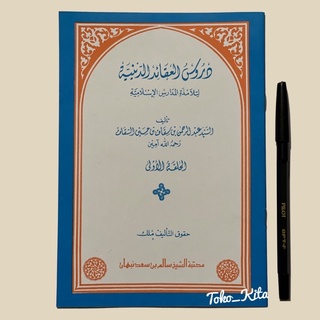 دروس العقائد الدينية
لتلامذة المدارس الإسلامية
تأليف
السيد عبد الرحمن بن سقاف بن حسين السقاف
رحمه الله آمين
الحلقة الأولى
حقوق التأليف ملك
مكتبة الشيخ سالم بن سعد نبهان
Toko_Kita
PILOT